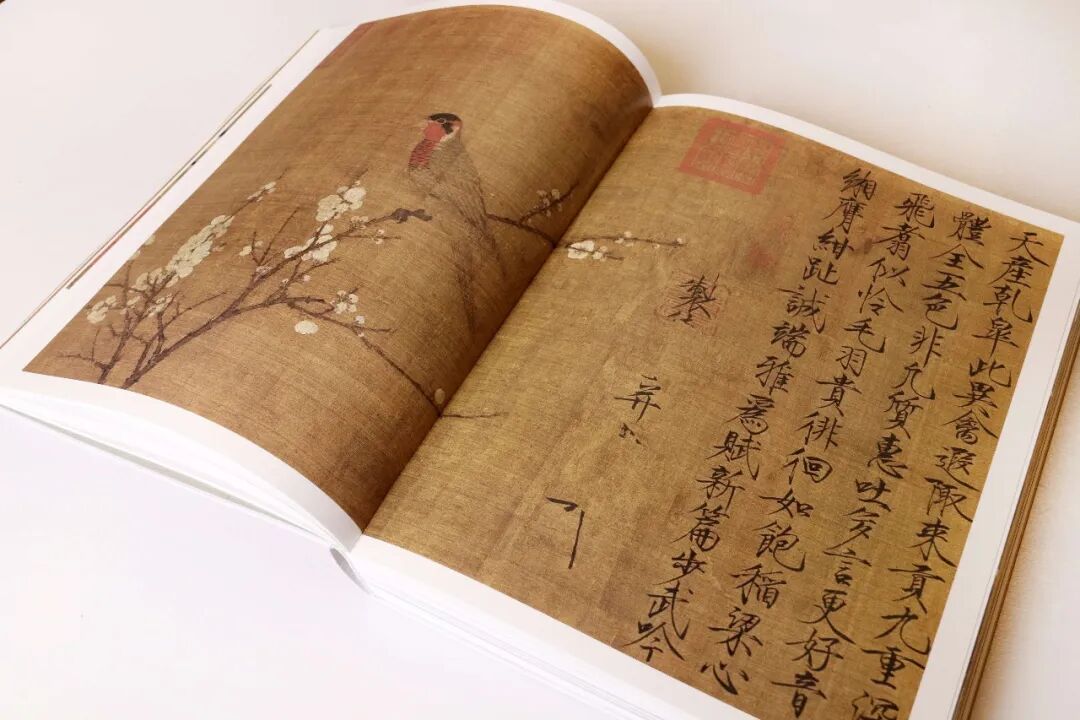 天產乾皋此異禽遐陬來貢九重深
體全五色非凡質惠吐多言更好音
飛翥似怜毛羽貴徘徊如飽稻粱心
緗膺紺趾誠端雅爲賦新篇步武吟
製
并書